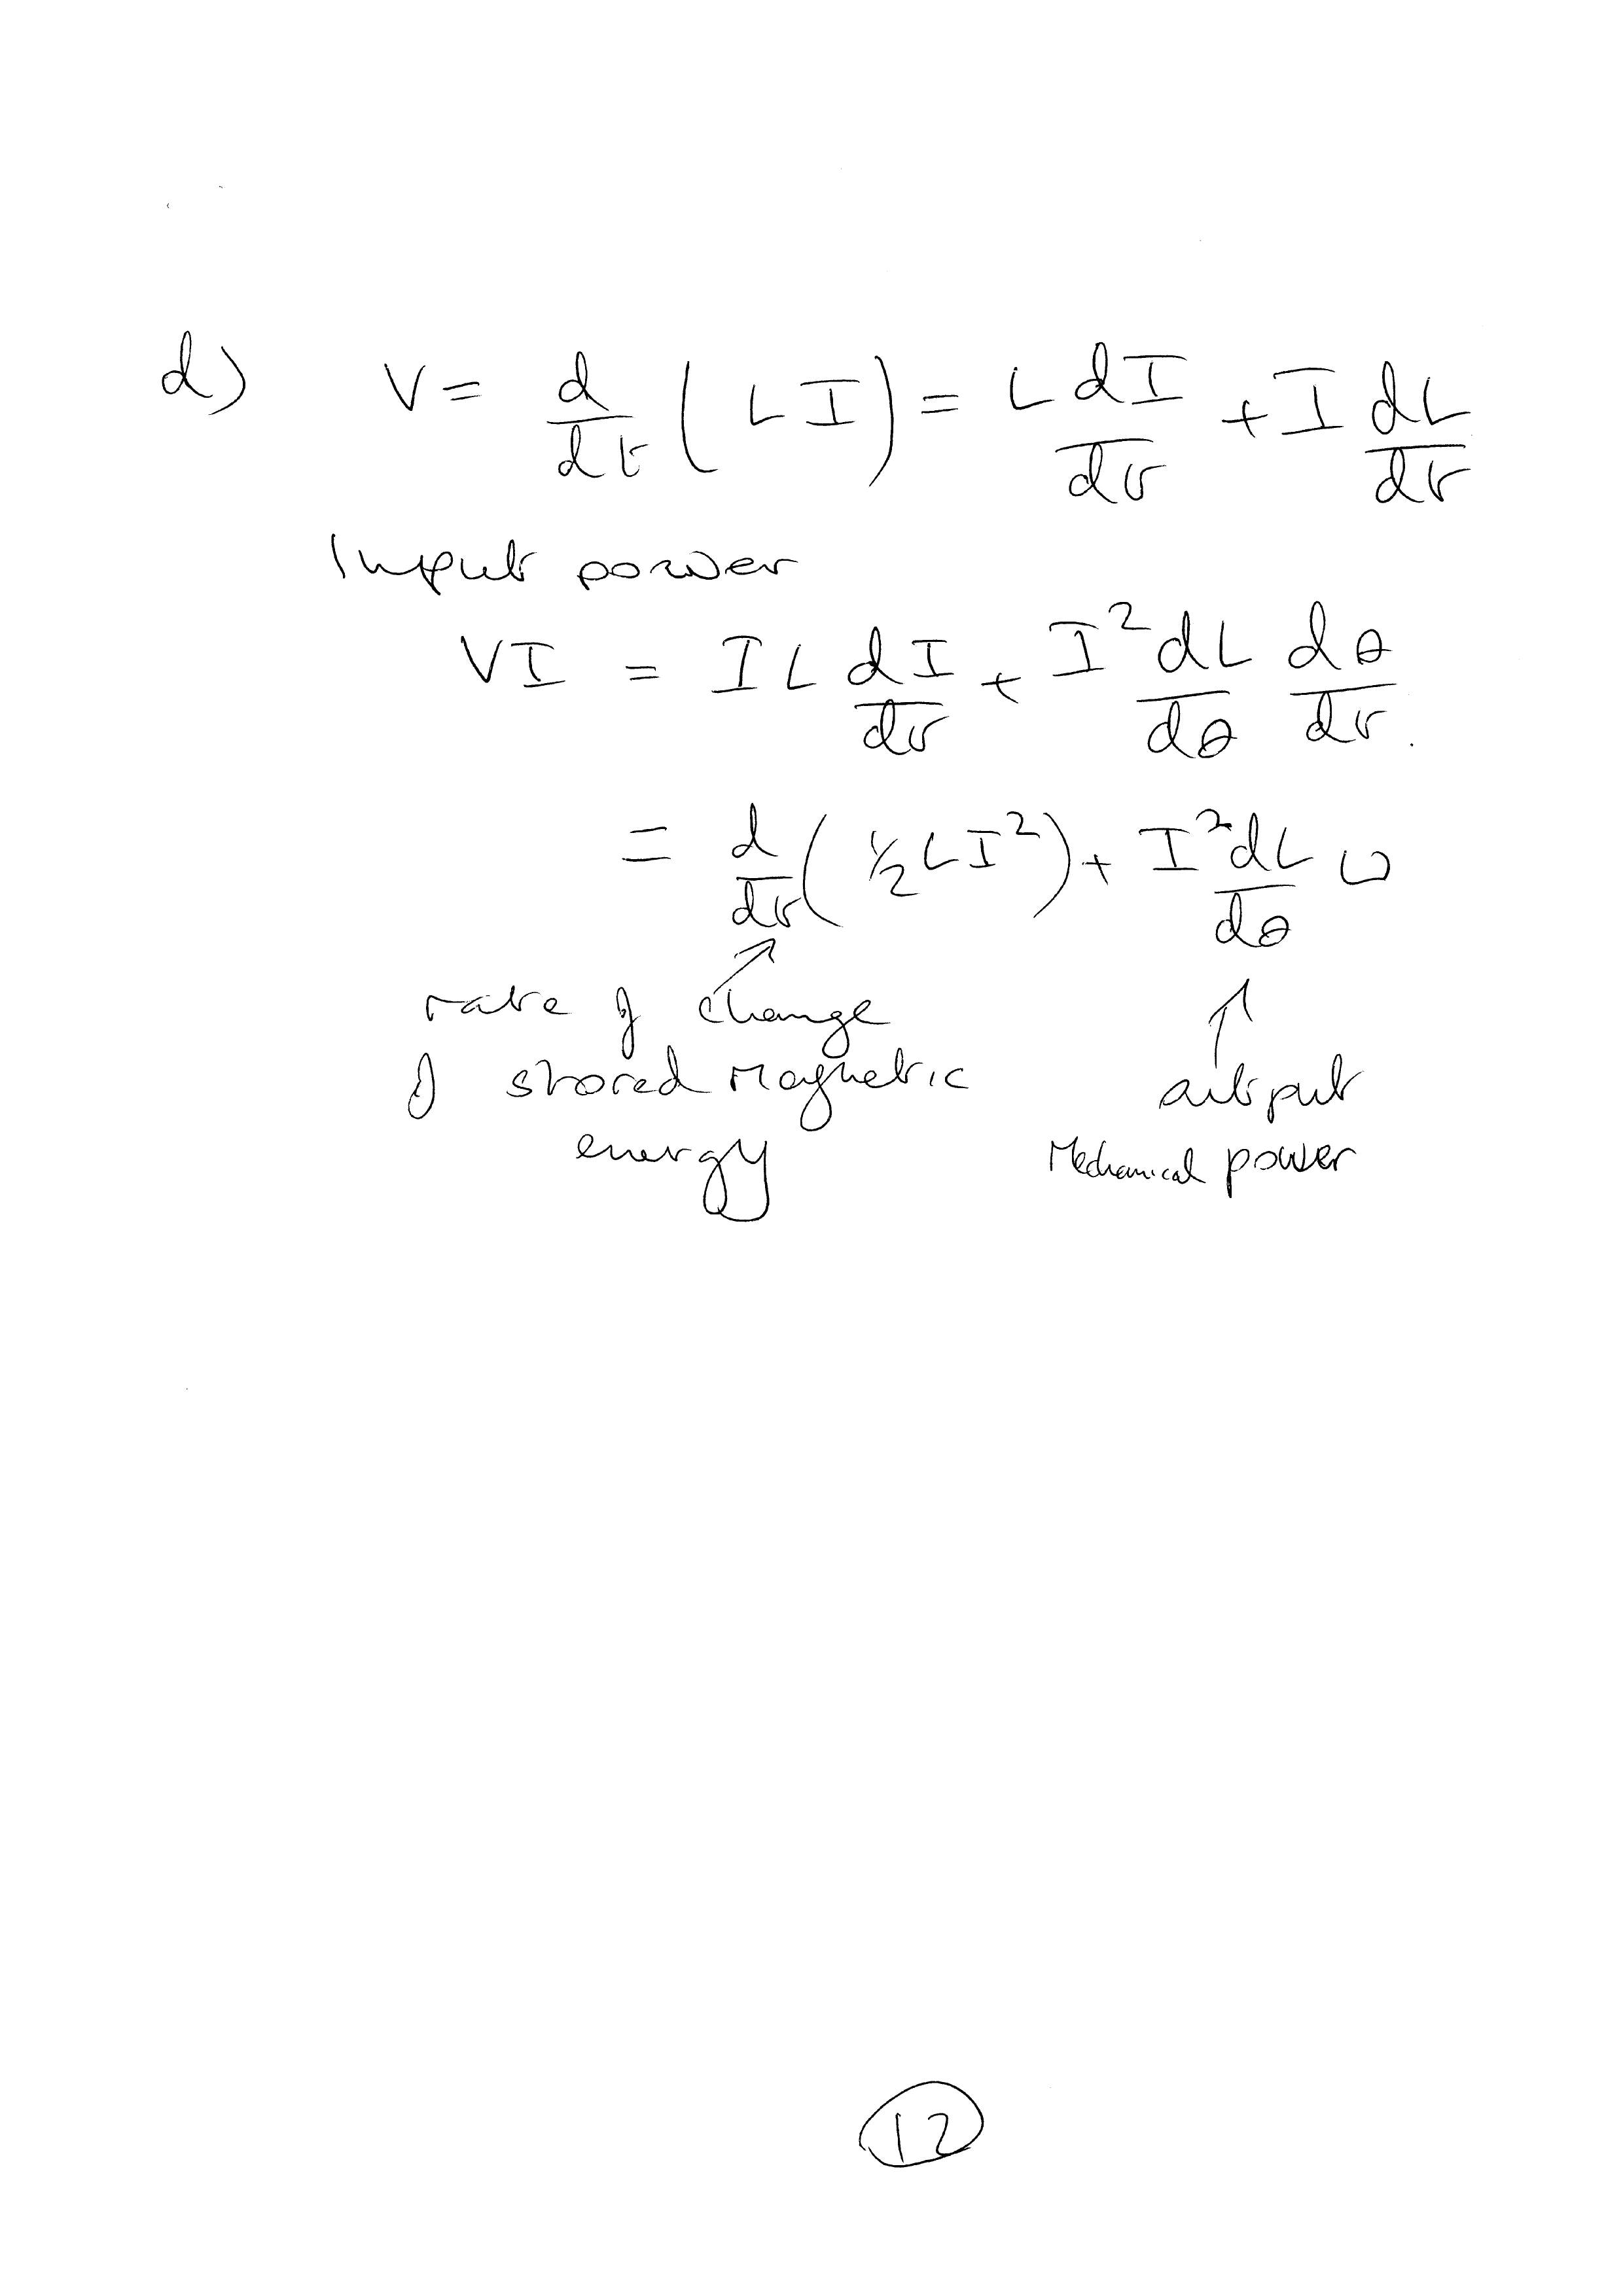 d) V = d/dt (LI) = L dI/dt + I dL/dt
Input power
VI = IL dI/dt + I² dL/dθ dθ/dt.
= d/dt (½LI²) + I² dL/dθ ω
rate of change
of stored Magnetic
energy
output
Mechanical power
12